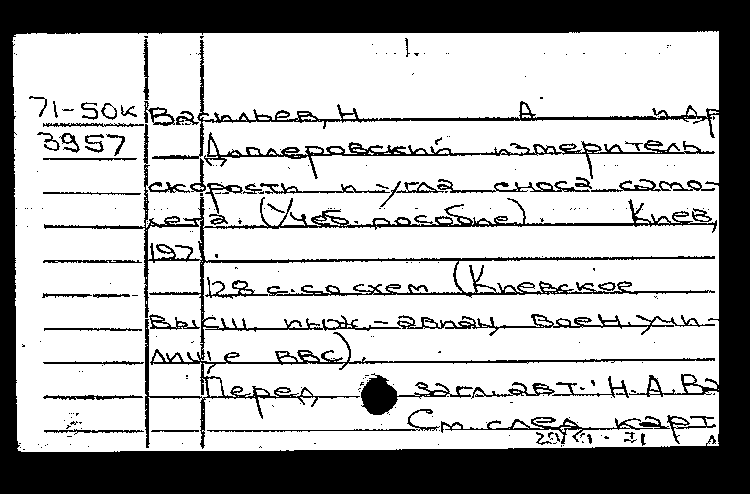 1.
71-50к Васильев, Н А и др
3957 Доплеровский измеритель
скорости и угла сноса само-
лета. (Учеб. пособие). Киев,
1971.
128 с. со схем (Киевское
высш. инж.-авиац. воен. учи-
лище ВВС).
Перед загл. авт.: Н.А. Ва
См. след карт